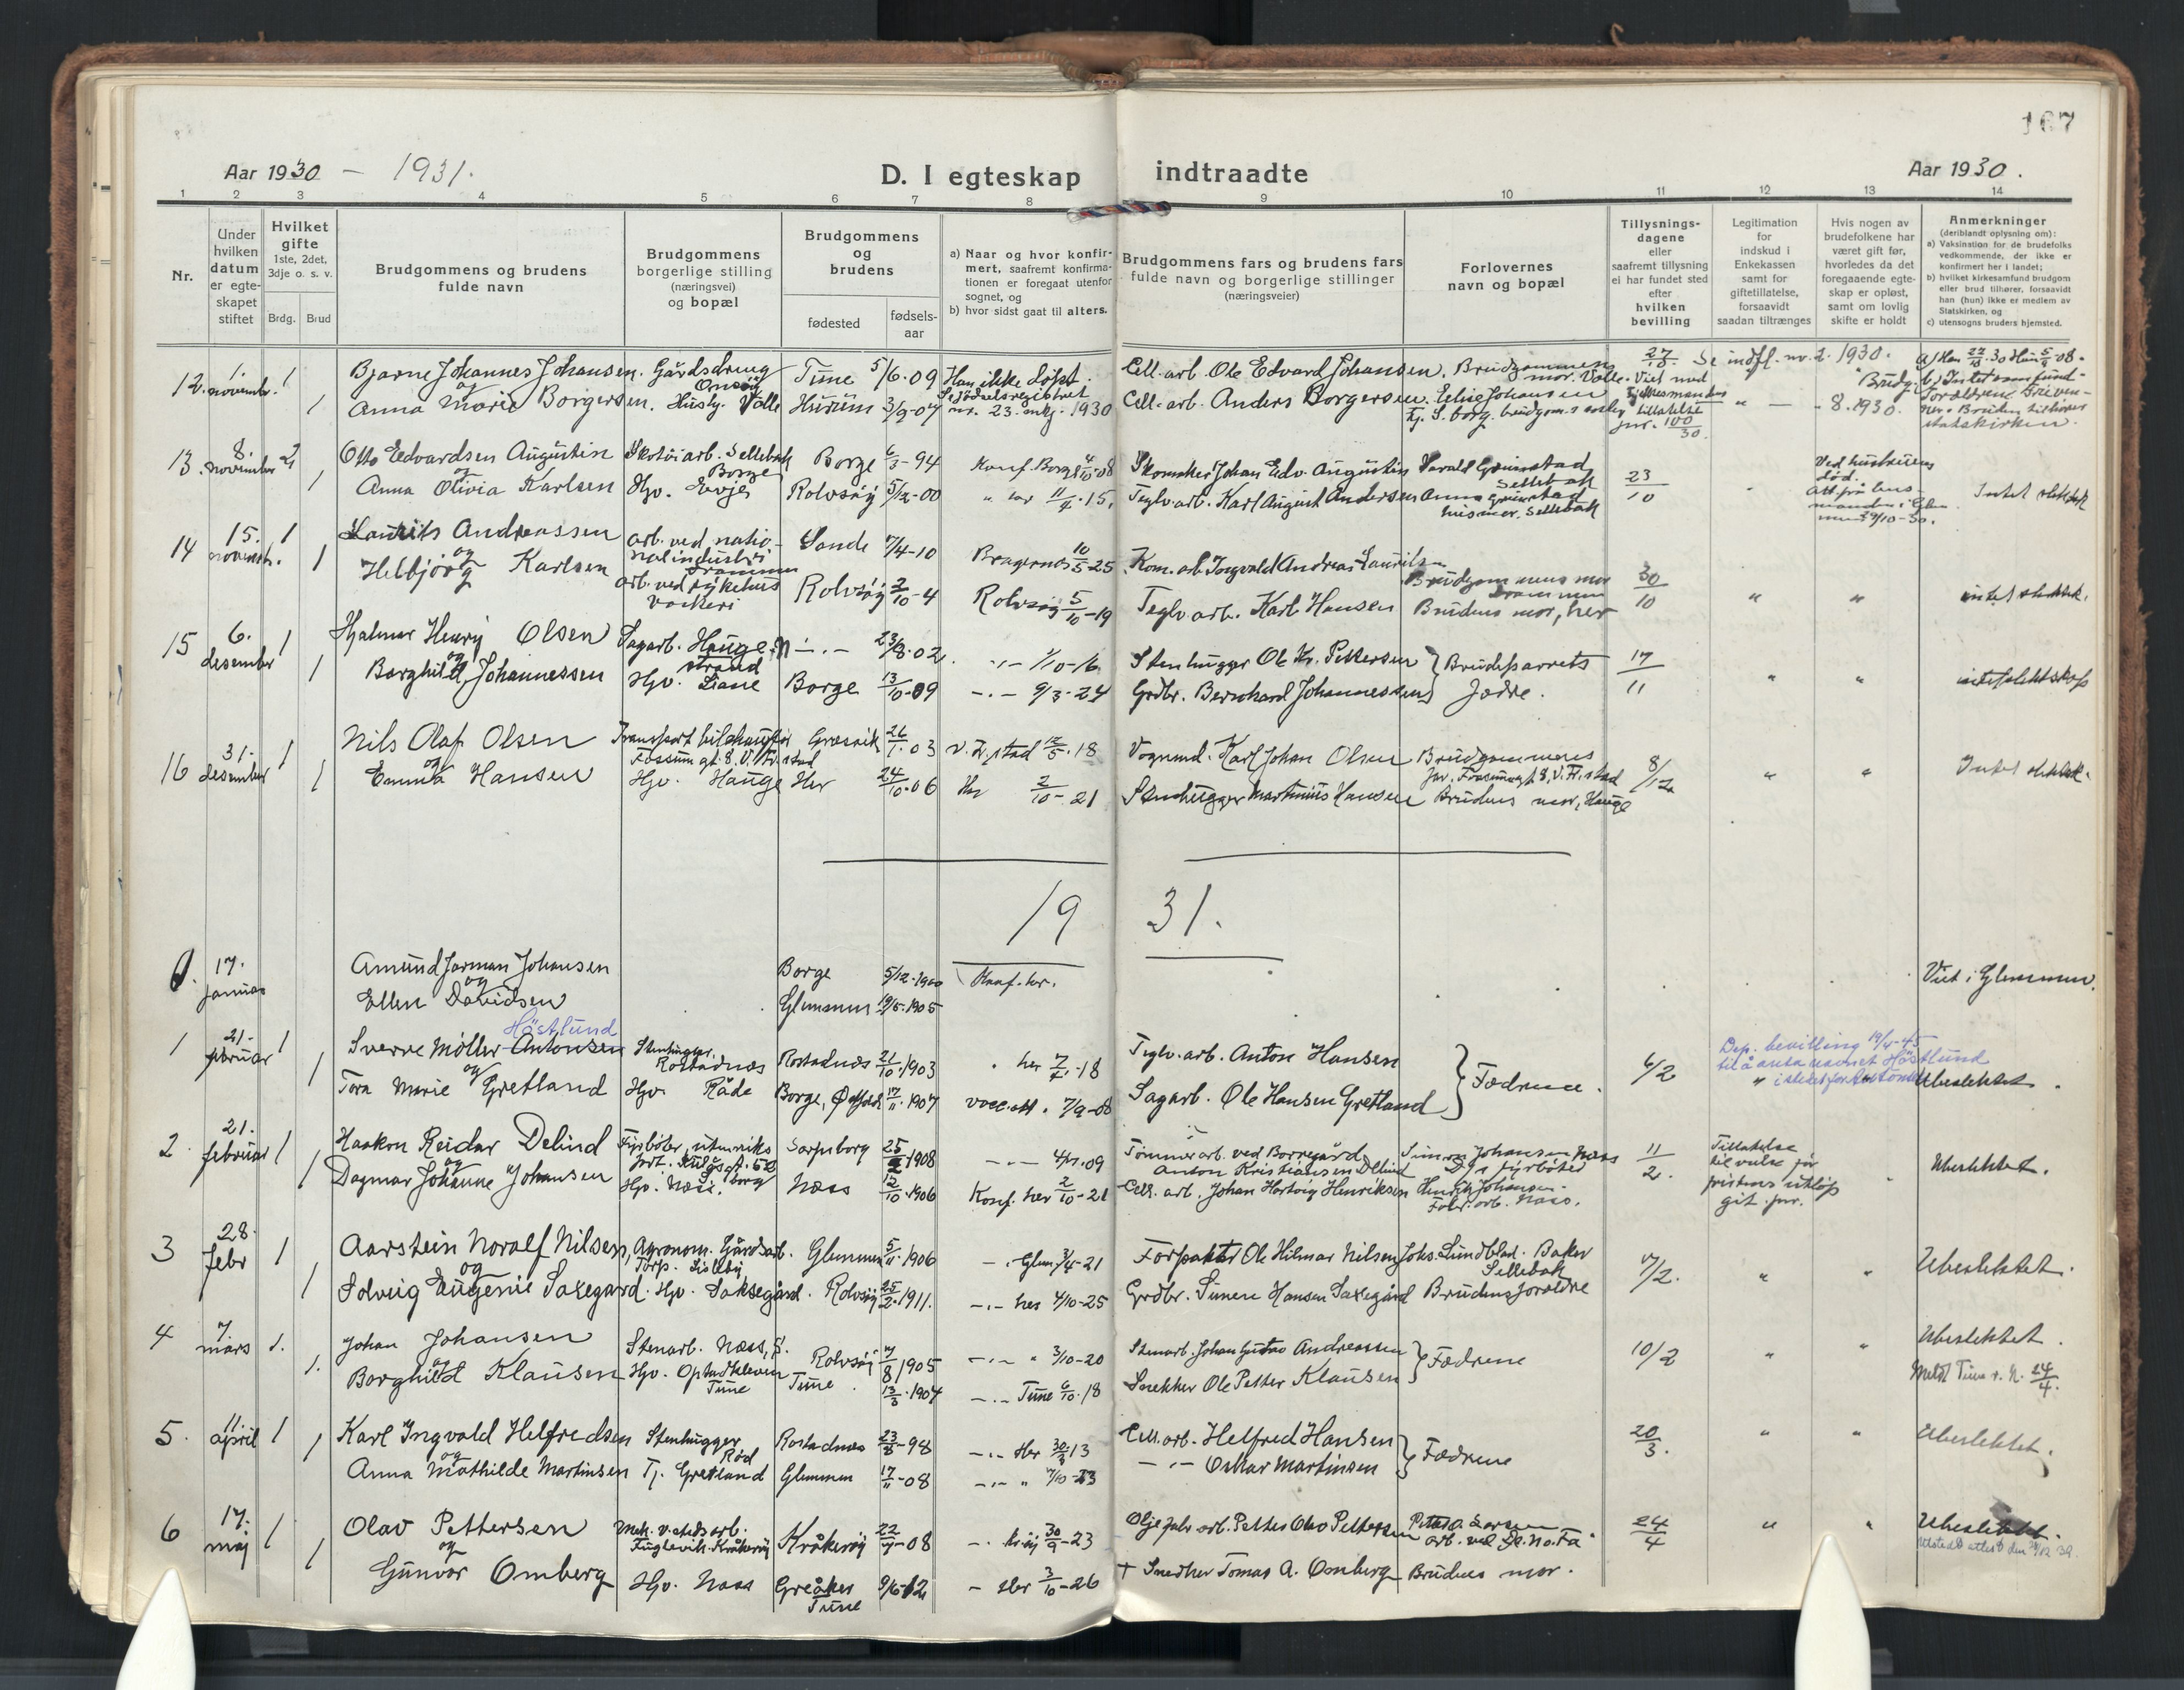 167
Aar 1930 – 1931.
D. I egteskap indtraadte
Aar 1930.
1 2 3 4 5 6 7 8 9 10 11 12 13 14
Nr.
Under hvilken datum er egte-skapet stiftet
Hvilket gifte 1ste, 2det, 3dje o. s. v.
Brdg. Brud
Brudgommens og brudens fulde navn
Brudgommens borgerlige stilling (næringsvei) og bopæl
Brudgommens og brudens
fødested
fødsels-aar
a) Naar og hvor konfir-mert, saafremt konfirma-tionen er foregaat utenfor sognet, og
b) hvor sidst gaat til alters.
Brudgommens fars og brudens fars fulde navn og borgerlige stillinger (næringsveier)
Forlovernes navn og bopæl
Tillysnings-dagene eller saafremt tillysning ei har fundet sted efter hvilken bevilling
Legitimation for indskud i Enkekassen samt for giftetillatelse, forsaavidt saadan tiltrænges
Hvis nogen av brudefolkene har været gift før, hvorledes da det foregaaende egte-skap er opløst, samt om lovlig skifte er holdt
Anmerkninger (deriblandt oplysning om):
a) Vaksination for de brudefolks vedkommende, der ikke er konfirmert her i landet;
b) hvilket kirkesamfund brudgom eller brud tilhører, forsaavidt han (hun) ikke er medlem av Statskirken, og
c) utensogns bruders hjemsted.
12. 1. novembr. 1 Bjarne Johannes Johansen. Gårdsdreng Onsøy Tune 5/6.09 Han ikke døpt. Cell. arb. Ole Edvard Johansen. Brudgommens mor. Valle. 27/10 Se indfl. nr. 2. 1930.
og
1 Anna Marie Borgersen. Husby. Valle Hurum 3/9-07 Se fødselsregistret nr. 23. 1930 Cell. arb. Anders Borgersen. Viet med tillatelse jnr. 100/30. " — 8.1930. Bruden tilhører statskirken.
13. 8. november 2 Otto Edvardsen Augustin Skotøiarb. Sellebak Borge Borge 6/3-94 Konf. Borge 4/10-08 Skomaker Johan Edv. Augustin Harald Grimstad Sellebak 23/10 Ved hustruens død.
og
1 Anna Olivia Karlsen Hjv. Evje Rolvsøy 5/12-00 " her 11/4-15. Teglv. arb. Karl August Andersen Anna Grimstad Sellebak Intet slektsk
14 15. novembr. 1 Laurits Andreassen arb. ved natio-nalindustri Drammen Sande 7/4-10 Bragernes 10/5-25 Kom. arb. Ingvald Andreas Lauritsen Brudgommens mor Drammen 30/10
og
1 Helbjörg Karlsen arb. ved sykehus vaskeri Rolvsøy 2/10-4 Rolvsøy 5/10-19 Teglv. arb. Karl Hansen Brudens mor, her " " intet slektsk.
15 6. desember 1 Hjalmar Henry Olsen Sagarb. Haugestrand —.— 23/8.02 —.— 1/10-16 Stenhugger Ole Kr. Pettersen } Brudeparrets fædre. 17/11
og
1 Borghild Johannessen Hjv. Liane Borge 13/10-09 —.— 9/3-24 Grdbr. Bernhard Johannessen " " intet slektskap
16 31. desember 1 Nils Olaf Olsen Transport bilchauffør Fossum gt. 8. V. Fr.stad Gressvik 26/1.03 V. Fr.stad 12/5.18 Vognmd. Karl Johan Olsen Brudgommens far. Fossumgt. 8, V. Fr.stad 8/12
og
1 Emma Hansen Hjv. Hauge Her 24/10.06 Her 2/10-21 Stenhugger Martinius Hansen Brudens mor, Hauge " " Intet slektsk.
19 31.
0. 17. januar Amund Jarman Johansen Borge 5/12.1900 Konf. her. Viet i Glemmen.
og
Ellen Davidsen Glemmen 19/5.1905
1 21. februar 1 Sverre Möller Antonsen Höstlund Stenhugger. Rostadnæs Rostadnæs 21/10.1903 " her 7/4-18 Teglv. arb. Anton Hansen } Fædrene. 6/2 Dep. bevilling 19/4-45 til å anta navnet Höstlund i stedet for Antonsen
og
1 Tora Marie Gretland Hjv. Råde Borge, Østfold 17/11.1907 vacc. att. 7/9-08 Sagarb. Ole Hansen Gretland Ubeslektet.
2. 21. februar 1 Haakon Reidar Delind Fyrbøter, utenriks Sarpsborg 25/1908 —.— 4/11.09 Tømmerarb. ved Borregård Anton Kristiansen Delind Simon Johansen Næss fyrbøter 11/2. Tillatelse til vielse før fristens utløp git. jnr.
og
1 Dagmar Johanne Johansen Hjv. Næss. Næss 12/10.1906 Konf. her 2/10-21 Cell. arb. Johan Hartvig Henriksen Henrik Johansen Fabr. arb. Næss. Ubeslektet.
3 28. febr 1 Aarstein Noralf Nilsen, Agronom. Gårdsarb. Torp. Lisleby Glemmen 5/11.1906 —. Glem. 3/4-21 Forpakter Ole Hilmar Nilsen Johs. Lundblad. Baker Sellebak 17/2.
og
1 Solveig Eugenie Saxegard. Hjv. Saksegård. Rolvsøy 25/2.1911. —.— her 4/10-25 Grdbr. Simen Hansen Saxegård Brudens foreldre " " Ubeslektet.
4 7. mars 1. Johan Johansen Stenarb. Næss, Rolvsøy 7/8 1905 —.— " 3/10-20 Stenarb. Johan Gustav Andreassen } Fædrene 10/2 " " Ubeslektet.
og
1. Borghild Klausen Hjv. Opstadkleven Tune Tune. 13/3.1904 —.— Tune 6/10.18 Snekker Ole Petter Klausen Meldt Tune 24/4.
5. 11. april 1 Karl Ingvald Helfredsen Stenhugger Rød Rostadnes 23/8-98 —.. Her 30/3 13 Cell. arb. Helfred Hansen } Fædrene 20/3. " " Ubeslektet.
og
1 Anna Mathilde Martinsen Tj. Gretland Glemmen 17/11-08 —.— " 7/10-23 —.— Oskar Martinsen
6 17. maj 1 Olav Pettersen Mek. v.stedsarb. Fuglevik. Kråkerøy Kråkerøy 22/7-08 —. 30/9-23 Oljefabr arb. Petter Olvo Pettersen Petter A. Larsen arb. ved 24/4 " Ubeslektet.
og
1 Gunvor Omberg Hjv. Næss Greåker Tune 9/6-12 — Her 3/10-26 + Snedker Tomas A. Omberg Brudens mor.